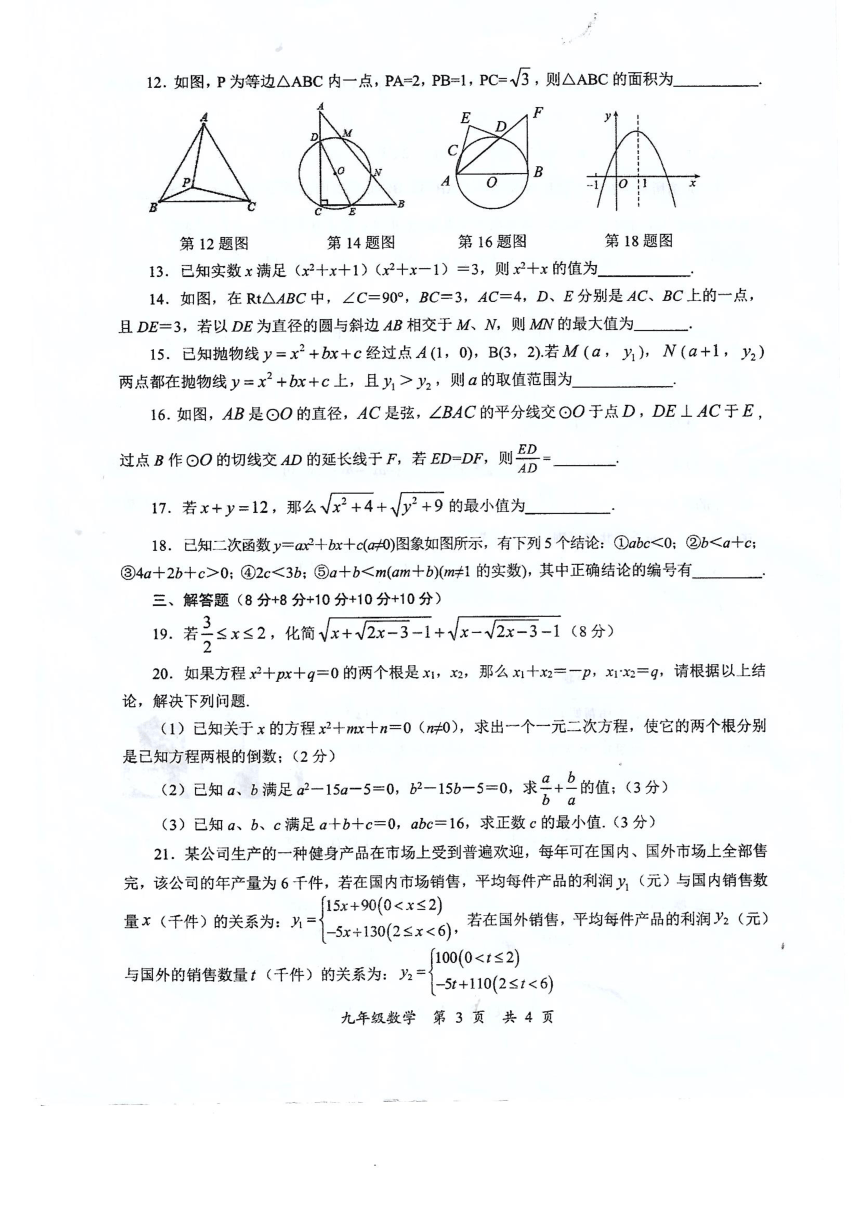 12．如图，P 为等边△ABC 内一点，PA=2，PB=1，PC=√3，则△ABC 的面积为________.
A
B
C
P
A
D
M
O
N
C
E
B
E
D
F
C
A
O
B
y
-1
O
1
x
第 12 题图 第 14 题图 第 16 题图 第 18 题图
13．已知实数 x 满足（x²＋x＋1）（x²＋x－1）＝3，则 x²＋x 的值为________.
14．如图，在 Rt△ABC 中，∠C＝90°，BC＝3，AC＝4，D、E 分别是 AC、BC 上的一点，
且 DE＝3，若以 DE 为直径的圆与斜边 AB 相交于 M、N，则 MN 的最大值为________.
15．已知抛物线 y = x² + bx + c 经过点 A (1，0)，B(3，2).若 M (a，y₁)，N (a+1，y₂)
两点都在抛物线 y = x² + bx + c 上，且 y₁ > y₂，则 a 的取值范围为________.
16．如图，AB 是⊙O 的直径，AC 是弦，∠BAC 的平分线交⊙O 于点 D，DE⊥AC 于 E，
过点 B 作⊙O 的切线交 AD 的延长线于 F，若 ED=DF，则 ED/AD = ________.
17．若 x + y = 12，那么 √(x²+4) + √(y²+9) 的最小值为________.
18．已知二次函数 y=ax²＋bx＋c(a≠0)图象如图所示，有下列 5 个结论：①abc<0；②b<a＋c；
③4a＋2b＋c>0；④2c<3b；⑤a＋b<m(am＋b)(m≠1 的实数)，其中正确结论的编号有________.
三、解答题（8 分+8 分+10 分+10 分+10 分）
19．若 3/2 ≤ x ≤ 2，化简 √(x+√(2x−3)−1) + √(x−√(2x−3)−1)（8 分）
20．如果方程 x²＋px＋q＝0 的两个根是 x₁，x₂，那么 x₁＋x₂＝－p，x₁·x₂＝q，请根据以上结
论，解决下列问题.
（1）已知关于 x 的方程 x²＋mx＋n＝0（n≠0），求出一个一元二次方程，使它的两个根分别
是已知方程两根的倒数；（2 分）
（2）已知 a、b 满足 a²－15a－5＝0，b²－15b－5＝0，求 a/b + b/a 的值；（3 分）
（3）已知 a、b、c 满足 a＋b＋c＝0，abc＝16，求正数 c 的最小值.（3 分）
21．某公司生产的一种健身产品在市场上受到普遍欢迎，每年可在国内、国外市场上全部售
完，该公司的年产量为 6 千件，若在国内市场销售，平均每件产品的利润 y₁（元）与国内销售数
量 x（千件）的关系为：y₁ = {15x+90(0<x≤2) −5x+130(2≤x<6)，若在国外销售，平均每件产品的利润 y₂（元）
与国外的销售数量 t（千件）的关系为：y₂ = {100(0<t≤2) −5t+110(2≤t<6)
九年级数学 第 3 页 共 4 页